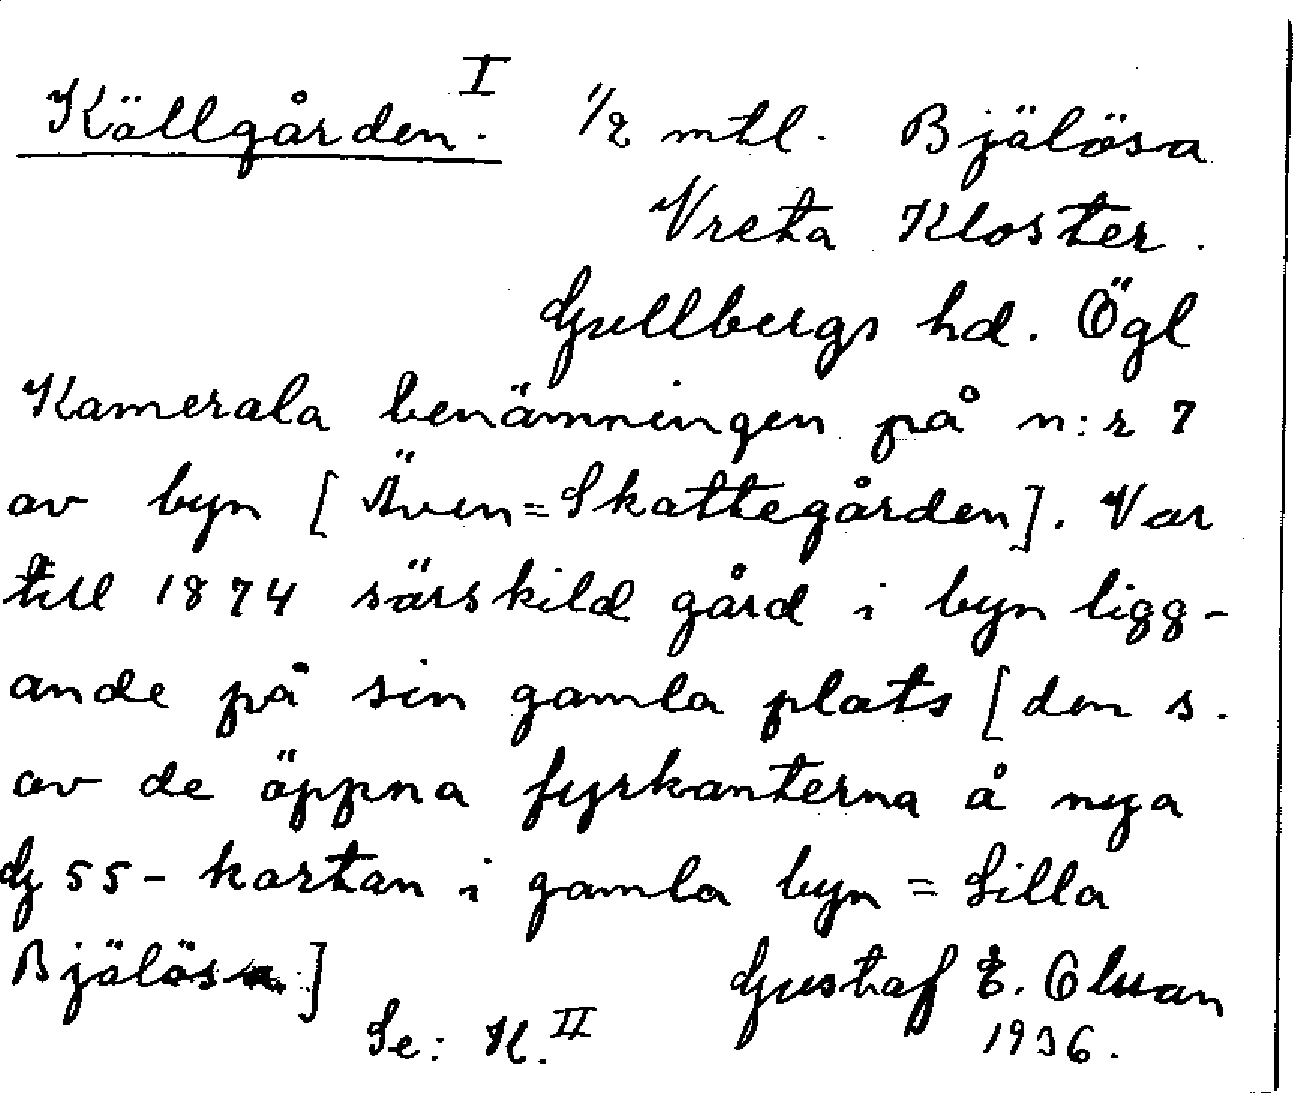 Källgården. I 1/2 mtl. Bjälösa
Vreta Kloster.
Gullbergs hd. Ögl
Kamerala benämningen på n:r 7
av byn [Även = Skattegården]. Var
till 1874 särskild gård i byn ligg-
ande på sin gamla plats [den s.
av de öppna fyrkanterna å nya
G 55 - kartan i gamla byn = Lilla
Bjälösa.]
Gustaf E. Olsson
Se: K. II
1936.